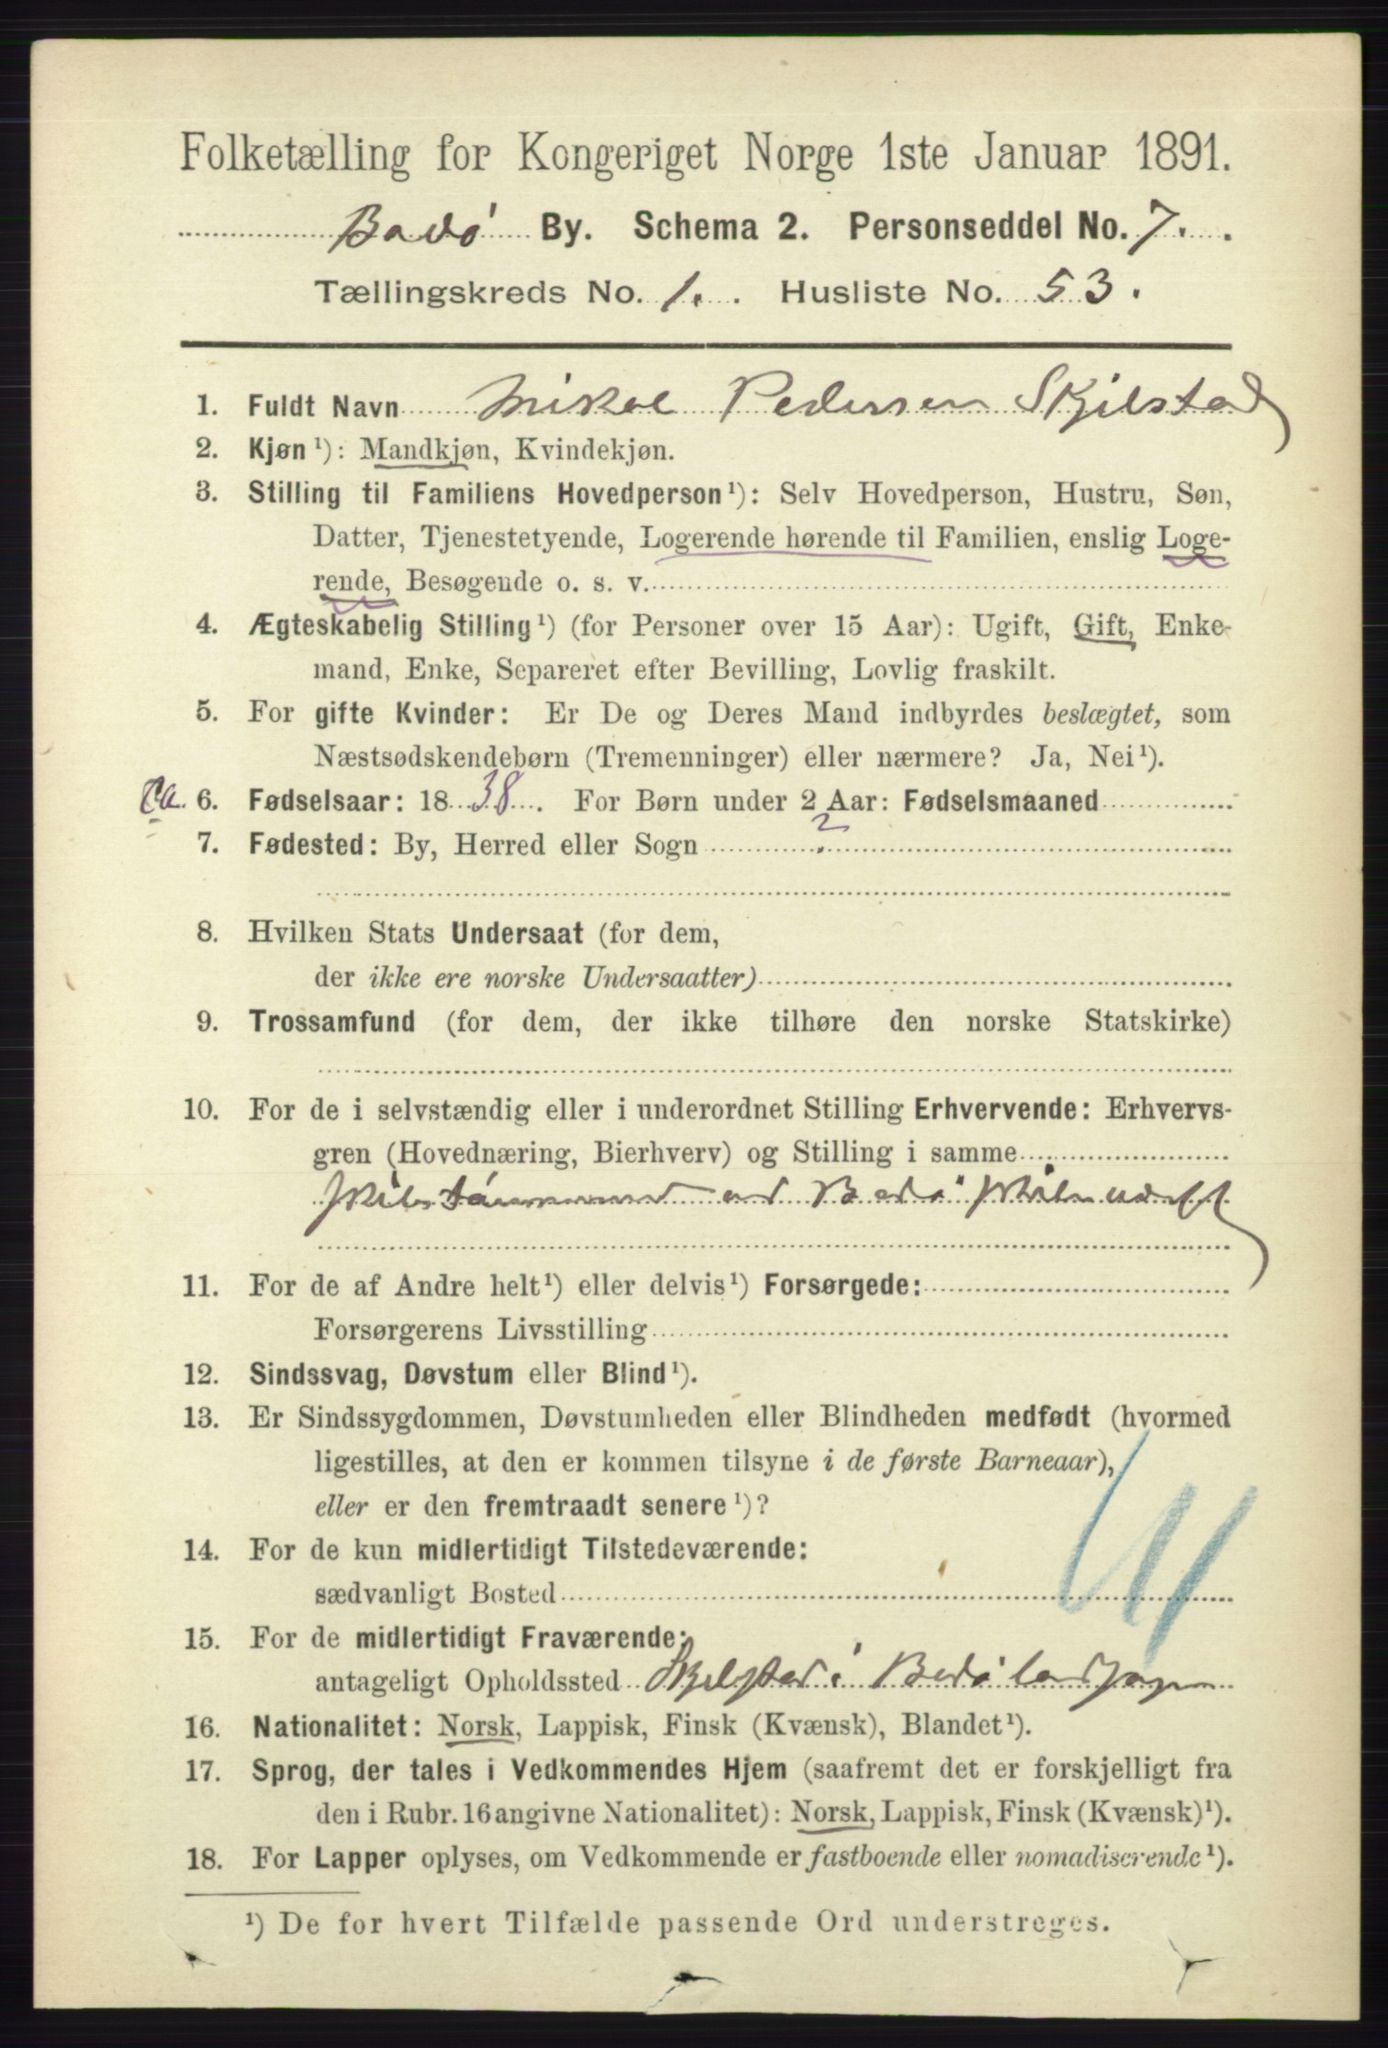 Folketælling for Kongeriget Norge 1ste Januar 1891.
Bodø By. Schema 2. Personseddel No. 7.
Tællingskreds No. 1. Husliste No. 53.
1. Fuldt Navn Mikal Pedersen Skjelstad
2. Kjøn ¹): Mandkjøn, Kvindekjøn.
3. Stilling til Familiens Hovedperson ¹): Selv Hovedperson, Hustru, Søn,
Datter, Tjenestetyende, Logerende hørende til Familien, enslig Loge-
rende, Besøgende o. s. v.
4. Ægteskabelig Stilling ¹) (for Personer over 15 Aar): Ugift, Gift, Enke-
mand, Enke, Separeret efter Bevilling, Lovlig fraskilt.
5. For gifte Kvinder: Er De og Deres Mand indbyrdes beslægtet, som
Næstsødskendebørn (Tremenninger) eller nærmere? Ja, Nei ¹).
Ca. 6. Fødselsaar: 1838. For Børn under 2 Aar: Fødselsmaaned
7. Fødested: By, Herred eller Sogn ?
8. Hvilken Stats Undersaat (for dem,
der ikke ere norske Undersaatter)
9. Trossamfund (for dem, der ikke tilhøre den norske Statskirke)
10. For de i selvstændig eller i underordnet Stilling Erhvervende: Erhvervs-
gren (Hovednæring, Bierhverv) og Stilling i samme
ved Bodø
11. For de af Andre helt ¹) eller delvis ¹) Forsørgede:
Forsørgerens Livsstilling
12. Sindssvag, Døvstum eller Blind ¹).
13. Er Sindssygdommen, Døvstumheden eller Blindheden medfødt (hvormed
ligestilles, at den er kommen tilsyne i de første Barneaar),
eller er den fremtraadt senere ¹)?
14. For de kun midlertidigt Tilstedeværende:
sædvanligt Bosted
15. For de midlertidigt Fraværende:
antageligt Opholdssted Skjelstad i Bodø landsogn
16. Nationalitet: Norsk, Lappisk, Finsk (Kvænsk), Blandet ¹).
17. Sprog, der tales i Vedkommendes Hjem (saafremt det er forskjelligt fra
den i Rubr. 16 angivne Nationalitet): Norsk, Lappisk, Finsk (Kvænsk) ¹).
18. For Lapper oplyses, om Vedkommende er fastboende eller nomadiserende ¹).
¹) De for hvert Tilfælde passende Ord understreges.